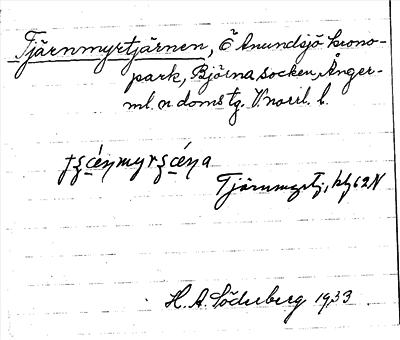 Tjärnmyrtjärnen, Ö Anundsjö krono-
park, Björna socken, Ånger-
ml. n doms tg. V. norrl. l.
Tjärnmyrtj., kbl 62 N
H. A. Söderberg 1933.